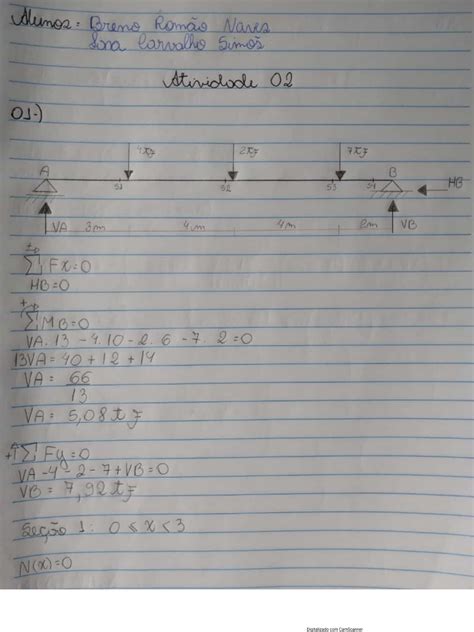 Alunos: Breno Romão Naves
Carvalho Simões
Atividade 02
01-)
4tf 2tf 7tf
A B
S1 S2 S3 S4 HB
VA 3m 4m 4m 2m VB
∑Fx=0
HB=0
∑MB=0
VA. 13 - 4.10 - 2. 6 - 7. 2 = 0
13VA = 40 + 12 + 14
VA = 66
13
VA = 5,08 tf
+↑∑Fy=0
VA - 4 - 2 - 7 + VB = 0
VB = 7,92 tf
Seção 1: 0 ≤ x < 3
N(x)=0
Digitalizado com CamScanner